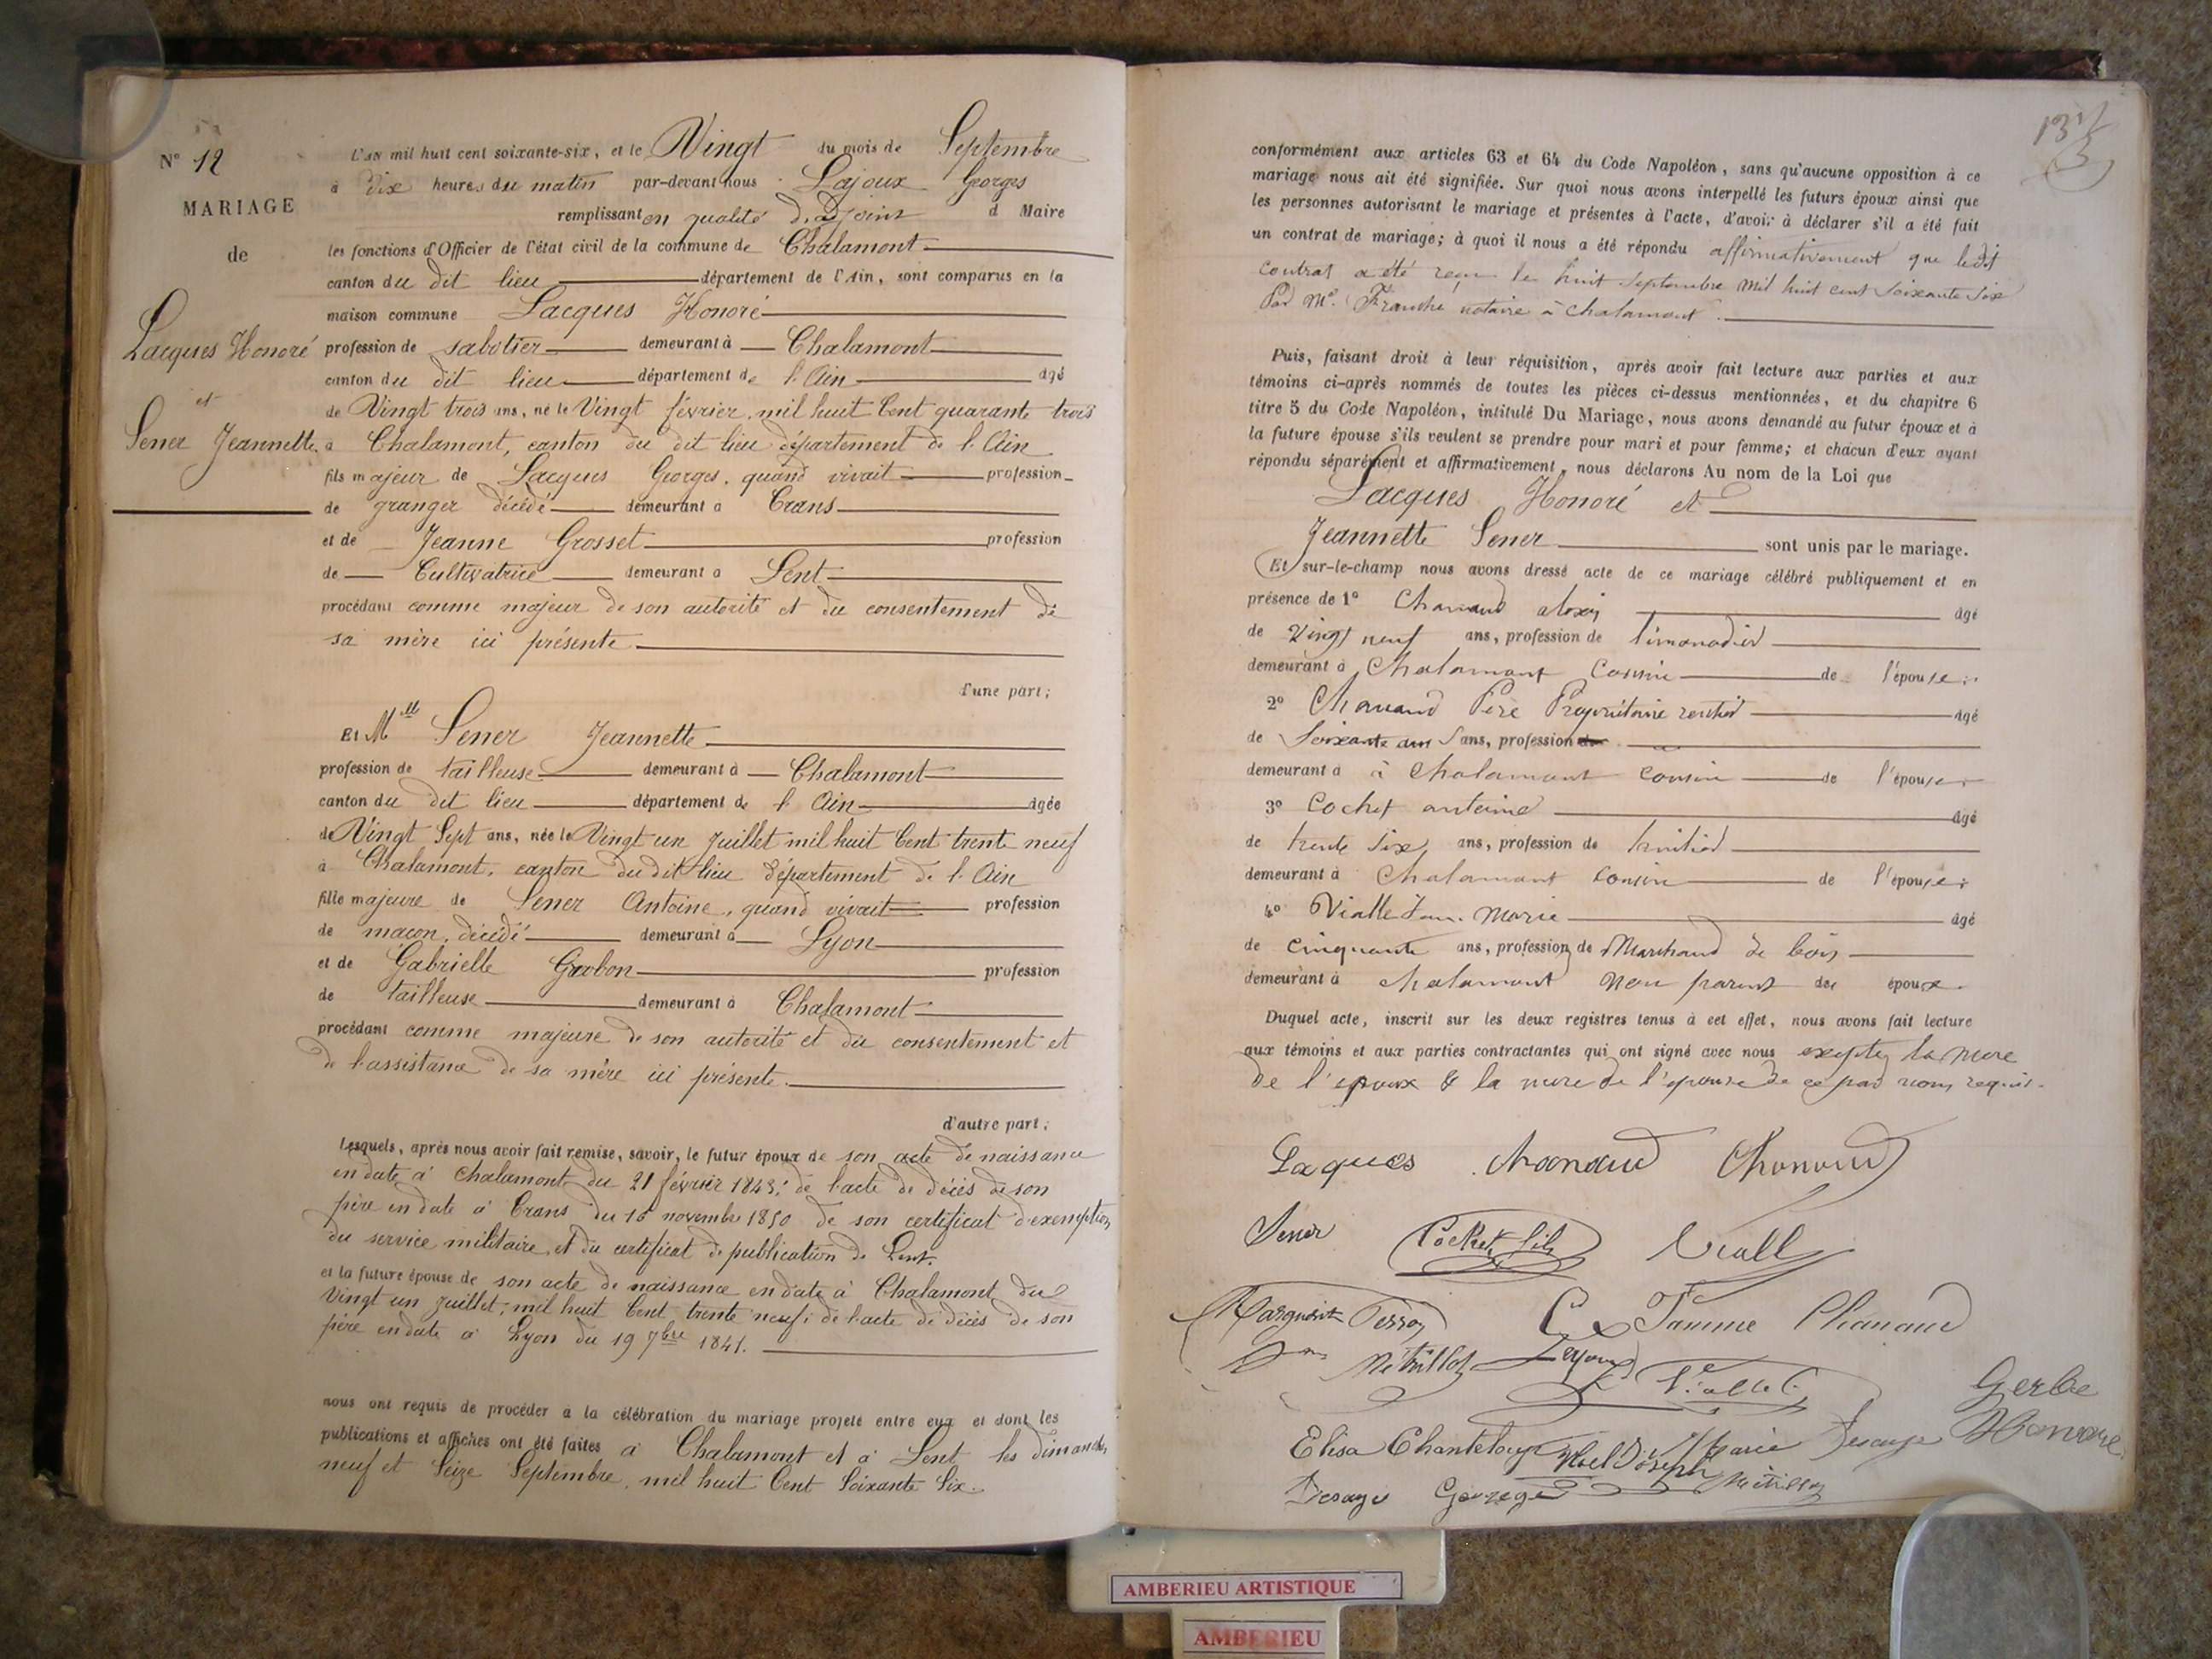 N° 12
MARIAGE
de
Lacques Honoré
et
Sener Jeannette
L'an mil huit cent soixante-six, et le Vingt du mois de Septembre
à dix heures du matin par-devant nous Lajoux Georges
remplissant en qualité d'adjoint d Maire
les fonctions d'Officier de l'état civil de la commune de Chalamont
canton du dit lieu département de l'Ain, sont comparus en la
maison commune Lacques Honoré
profession de sabotier demeurant à Chalamont
canton du dit lieu département de l'Ain âgé
de Vingt trois ans, né le Vingt février mil huit Cent quarante trois
à Chalamont, canton du dit lieu département de l'Ain
fils majeur de Lacques Georges, quand vivait profession
de granger décédé demeurant à Crans
et de Jeanne Grosset profession
de Cultivatrice demeurant à Lent
procédant comme majeur de son autorité et du consentement de
sa mère ici présente
d'une part;
Et Mlle Sener Jeannette
profession de tailleuse demeurant à Chalamont
canton du dit lieu département de l'Ain âgée
de Vingt Sept ans, née le Vingt un Juillet mil huit Cent trente neuf
à Chalamont, canton du dit lieu département de l'Ain
fille majeure de Sener Antoine, quand vivait profession
de maçon, décédé demeurant à Lyon
et de Gabrielle Grobon profession
de tailleuse demeurant à Chalamont
procédant comme majeure de son autorité et du consentement et
de l'assistance de sa mère ici présente.
d'autre part;
Lesquels, après nous avoir fait remise, savoir, le futur époux de son acte de naissance
en date à Chalamont du 21 février 1843; de l'acte de décès de son
père en date à Crans du 16 novembre 1850 de son certificat d'exemption
du service militaire et du certificat de publication de Lent.
et la future épouse de son acte de naissance en date à Chalamont du
Vingt un Juillet, mil huit Cent trente neuf; de l'acte de décès de son
père en date à Lyon du 19 7bre 1841.
nous ont requis de procéder à la célébration du mariage projeté entre eux et dont les
publications et affiches ont été faites à Chalamont et à Lent les dimanches
neuf et Seize Septembre, mil huit Cent Soixante Six.
conformément aux articles 63 et 64 du Code Napoléon, sans qu'aucune opposition à ce
mariage nous ait été signifiée. Sur quoi nous avons interpellé les futurs époux ainsi que
les personnes autorisant le mariage et présentes à l'acte, d'avoir à déclarer s'il a été fait
un contrat de mariage; à quoi il nous a été répondu affirmativement que ledit
contrat a été reçu le huit Septembre mil huit cent soixante six
Par Me. Franché notaire à Chalamont.
Puis, faisant droit à leur réquisition, après avoir fait lecture aux parties et aux
témoins ci-après nommés de toutes les pièces ci-dessus mentionnées, et du chapitre 6
titre 5 du Code Napoléon, intitulé Du Mariage, nous avons demandé au futur époux et à
la future épouse s'ils veulent se prendre pour mari et pour femme; et chacun d'eux ayant
répondu séparément et affirmativement, nous déclarons Au nom de la Loi que
Lacques Honoré et
Jeannette Sener sont unis par le mariage.
Et sur-le-champ nous avons dressé acte de ce mariage célébré publiquement et en
présence de 1° Chanaud alexis âgé
de Vingt neuf ans, profession de limonadier
demeurant à Chalamont Cousin de l'épouse.
2° Chanaud Père Propriétaire rentier âgé
de Soixante ans, profession
demeurant à à Chalamont cousin de l'épouse
3° Cochet antoine âgé
de trente six ans, profession de
demeurant à Chalamont cousin de l'épouse
4° Vialle Jean Marie âgé
de cinquante ans, profession de Marchand de bois
demeurant à chalamont non parent des époux.
Duquel acte, inscrit sur les deux registres tenus à cet effet, nous avons fait lecture
aux témoins et aux parties contractantes qui ont signé avec nous excepté la mere
de l'epoux & la mere de l'epouse de ce par nous requis.
Laques Chanaud Chanaud
Sener Cochet fils Viall
Marguerite Perroy Chanaud
Métrillot Lajoux Vialle
Gerbe
Elisa Chanteloup Noel Joseph Marie Desaye Honoré
Desaye Métrillot
AMBERIEU ARTISTIQUE
AMBERIEU